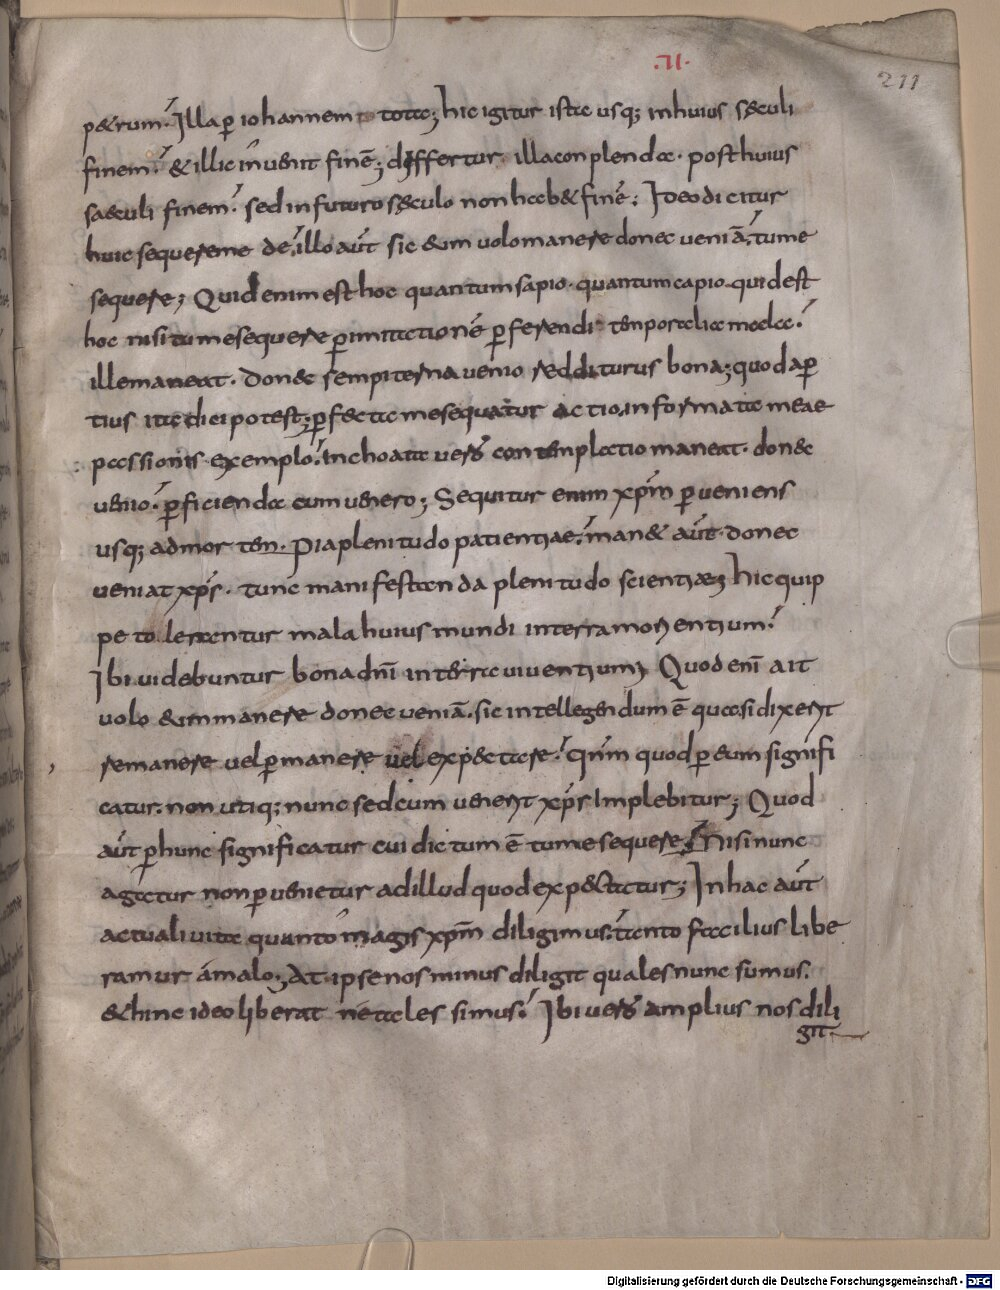 .VI.
211
p&rum. Illa ꝑ iohannem totae; hic igitur ista usq; inhuius sęculi
finem. & illic inuenit finē; differtur illa conplenda. post huius
saeculi finem. sed in futuro sęculo non hab& finē; Ideo dicitur
huic sequere me de illo aūt sic eum uolo manere donec ueniā, tu me
sequere; Quid enim est hoc quantum sapio. quantum capio. quid est
hoc nisi tu me sequere ꝑ imitationē ꝑferendi temporalia mala.
ille maneat. donec sempiterna uenio redditurus bona; quod aꝑ
tius ita dici potest; ꝑfecta me sequatur actio, informata meae
passionis exemplo. inchoata uero contemplatio maneat. donec
uenio. ꝑficienda cum uenero; Sequitur enim xp̄m ꝑueniens
usq; ad mortem. Pia plenitudo patientiae. man& aūt donec
ueniat xp̄s. tunc manifestanda plenitudo scientiae; hic quip
pe tolerentur mala huius mundi in terra morientium.
Ibi uidebuntur bona dn̄i in terra uiuentium; Quod enī ait
uolo eum manere donec ueniā. sic intellegendum ē quasi dixerit
remanere uel ꝑmanere uel exp&tare. Qm̄ quod ꝑ eum signifi
catur. non utiq; nunc sed cum uenerit xp̄s implebitur; Quod
aūt ꝑ hunc significatur cui dictum ē tu me sequere Nisi nunc
agatur non ꝑuenietur ad illud quod exp&tatur; In hac aūt
actuali uita quanto magis xp̄m diligimus. tanto facilius libe
ramur a malo; At ipse nos minus diligit quales nunc sumus.
& hinc ideo liberat ne tales simus. Ibi uero amplius nos dili
git
Digitalisierung gefördert durch die Deutsche Forschungsgemeinschaft - DFG